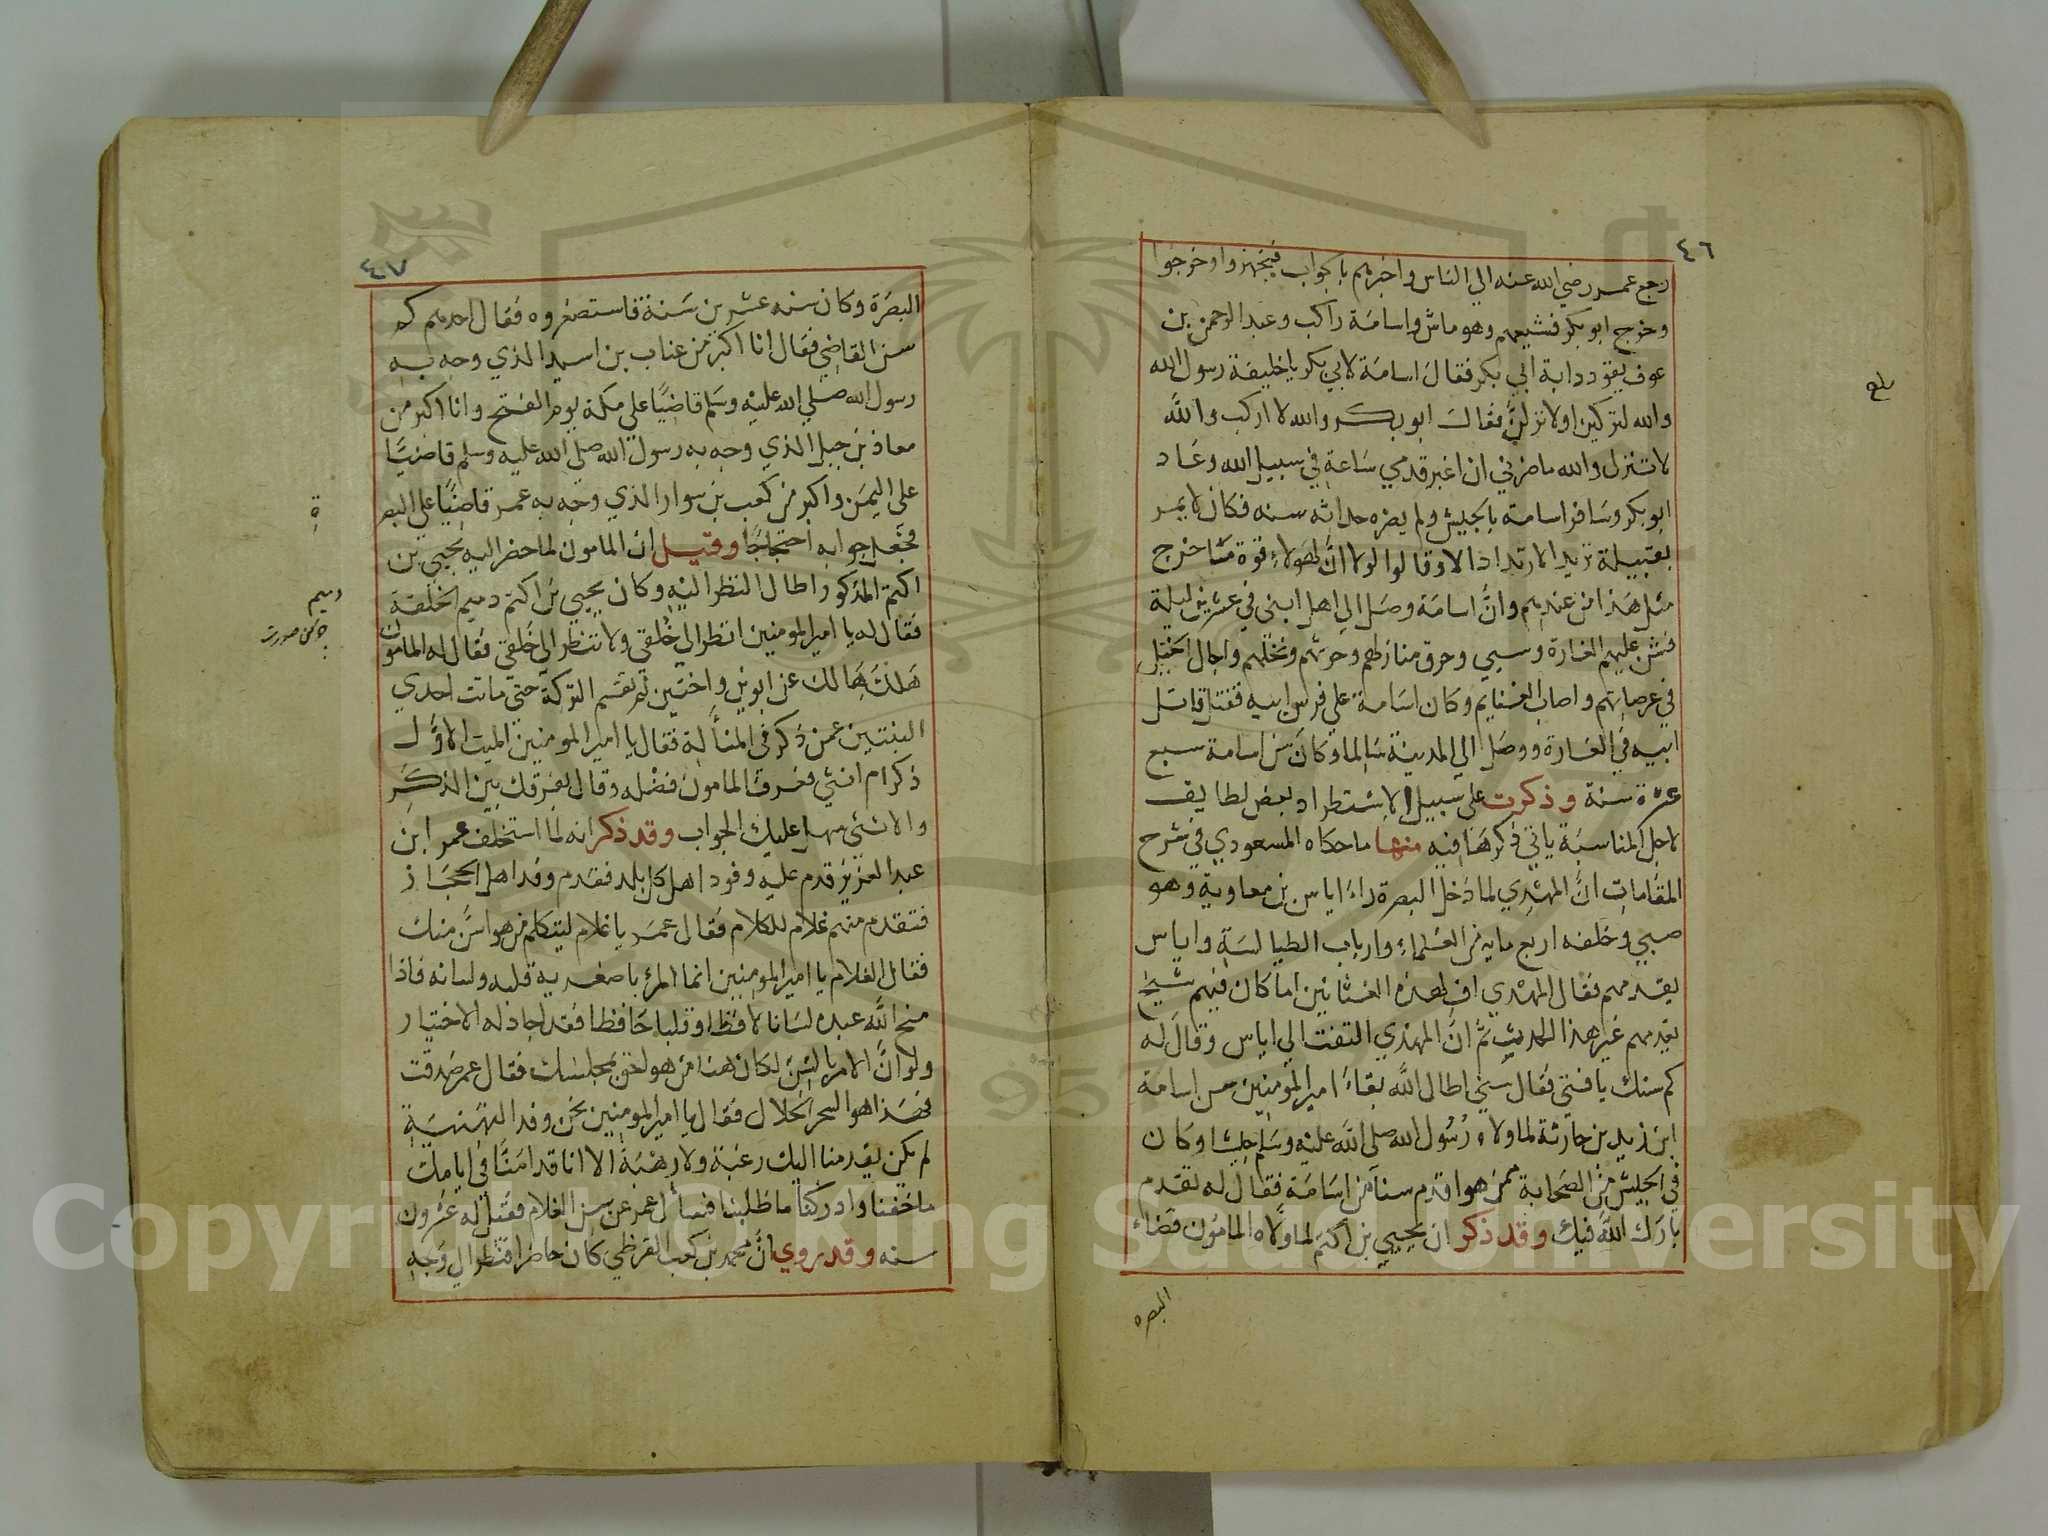 ٤٦
رجع عمر رضي الله عنه الي الناس واخبرهم بالجواب فتجهزوا وخرجوا
وخرج ابو بكر فشيعهم وهو ماش واسامة راكب وعبد الرحمن بن
عوف يقود دابة ابي بكر فقال اسامة لابي بكر يا خليفة رسول الله
والله لتركبن او لانزلن فقال ابو بكر والله لا اركب والله
لا تنزل والله ما ضرني ان اغبر قدمي ساعة في سبيل الله وعاد
ابو بكر وسافر اسامة بالجيش ولم يضره حداثه سنه فكان لا يمر
بقبيلة تريد الارتداد الا وقالوا لولا ان لهولاء قوة ما خرج
مثل هذا من عندهم وان اسامة وصل الي اهل ابنى في عشرين ليلة
فشن عليهم الغارة وسبي وحرق منازلهم وحرثهم ونخلهم واجال الخيل
في عرصاتهم واصاب الغنايم وكان اسامة علي فرس ابيه فقتل قاتل
ابيه في الغارة ووصل الي المدينة سالما وكان سن اسامة سبع
عشرة سنة وذكرت على سبيل الاستطراد بعض لطايف
لاجل المناسبة ياتي ذكرها فيه منها ما حكاه المسعودي في شرح
المقامات ان المهدي لما دخل البصرة راء اياس بن معاوية وهو
صبي وخلفه اربع مايه من العلماء وارباب الطيالسة واياس
يقدمهم فقال المهدي اف لهذه العثانين اما كان فيهم شيخ
يقدمهم غير هذا الحدث ثم ان المهدي التفت الي اياس وقال له
كم سنك يا فتى فقال سني اطال الله بقاء امير المومنين سن اسامة
ابن زيد بن حارثة لما ولاه رسول الله صلى الله عليه وسلم جيشا وكان
في الجيش من الصحابة ممن هو اقدم سنا من اسامة فقال له تقدم
بارك الله فيك وقد ذكر ان يحيي بن اكتم لما ولاه المامون قضاء
البصره
٤٧
البصرة وكان سنه عشرين سنة فاستصغروه فقال احدهم كم
سن القاضي فقال انا اكبر من عتاب بن اسيد الذي وجه به
رسول الله صلي الله عليه وسلم قاضيا على مكة يوم الفتح وانا اكبر من
معاذ بن جبل الذي وجه به رسول الله صلى الله عليه وسلم قاضيا
على اليمن واكبر من كعب بن سوار الذي وجه به عمر قاضيا علي البصر
ة
فجعل جوابه احتجاجا وقيل ان المامون لما حضر اليه يحيي بن
اكتم المذكور اطال النظر اليه وكان يحيي بن اكتم دميم الخلقة
دميم
فقال له يا امير المومنين انظر الي خلقي ولا تنظر الي خلقتي فقال له المامون
هلك هالك عن ابوين وابنتين لم تقسم التركة حتى ماتت احدي
البنتين عمن ذكر في المسألة فقال يا امير المومنين الميت الاول
ذكر ام انثي فعرف المامون فضله وقال بفرقك بين الذكر
والانثى سهل عليك الجواب وقد ذكر انه لما استخلف عمر ابن
عبد العزيز قدم عليه وفود اهل كل بلد فقدم وفد اهل الحجاز
فتقدم منهم غلام للكلام فقال عمر يا غلام ليتكلم من هو اسن منك
فقال الغلام يا امير المومنين انما المرء باصغريه قلبه ولسانه فاذا
منح الله عبده لسانا لافظا وقلبا حافظا فقد اجاد له الاختيار
ولو ان الامر بالسن لكان هنا من هو احق بمجلسك فقال عمر صدقت
فهذا هو السحر الحلال فقال يا امير المومنين نحن وفد التهنية
لم يكن يقدمنا اليك رغبة ولا رهبة الا انا قد امنا في ايامك
ما خفنا وادركنا ما طلبنا فسأل عمر عن سن الغلام فقيل له عشرون
سنه وقد روي ان محمد بن كعب القرظي كان حاضرا فنظر الي وجه